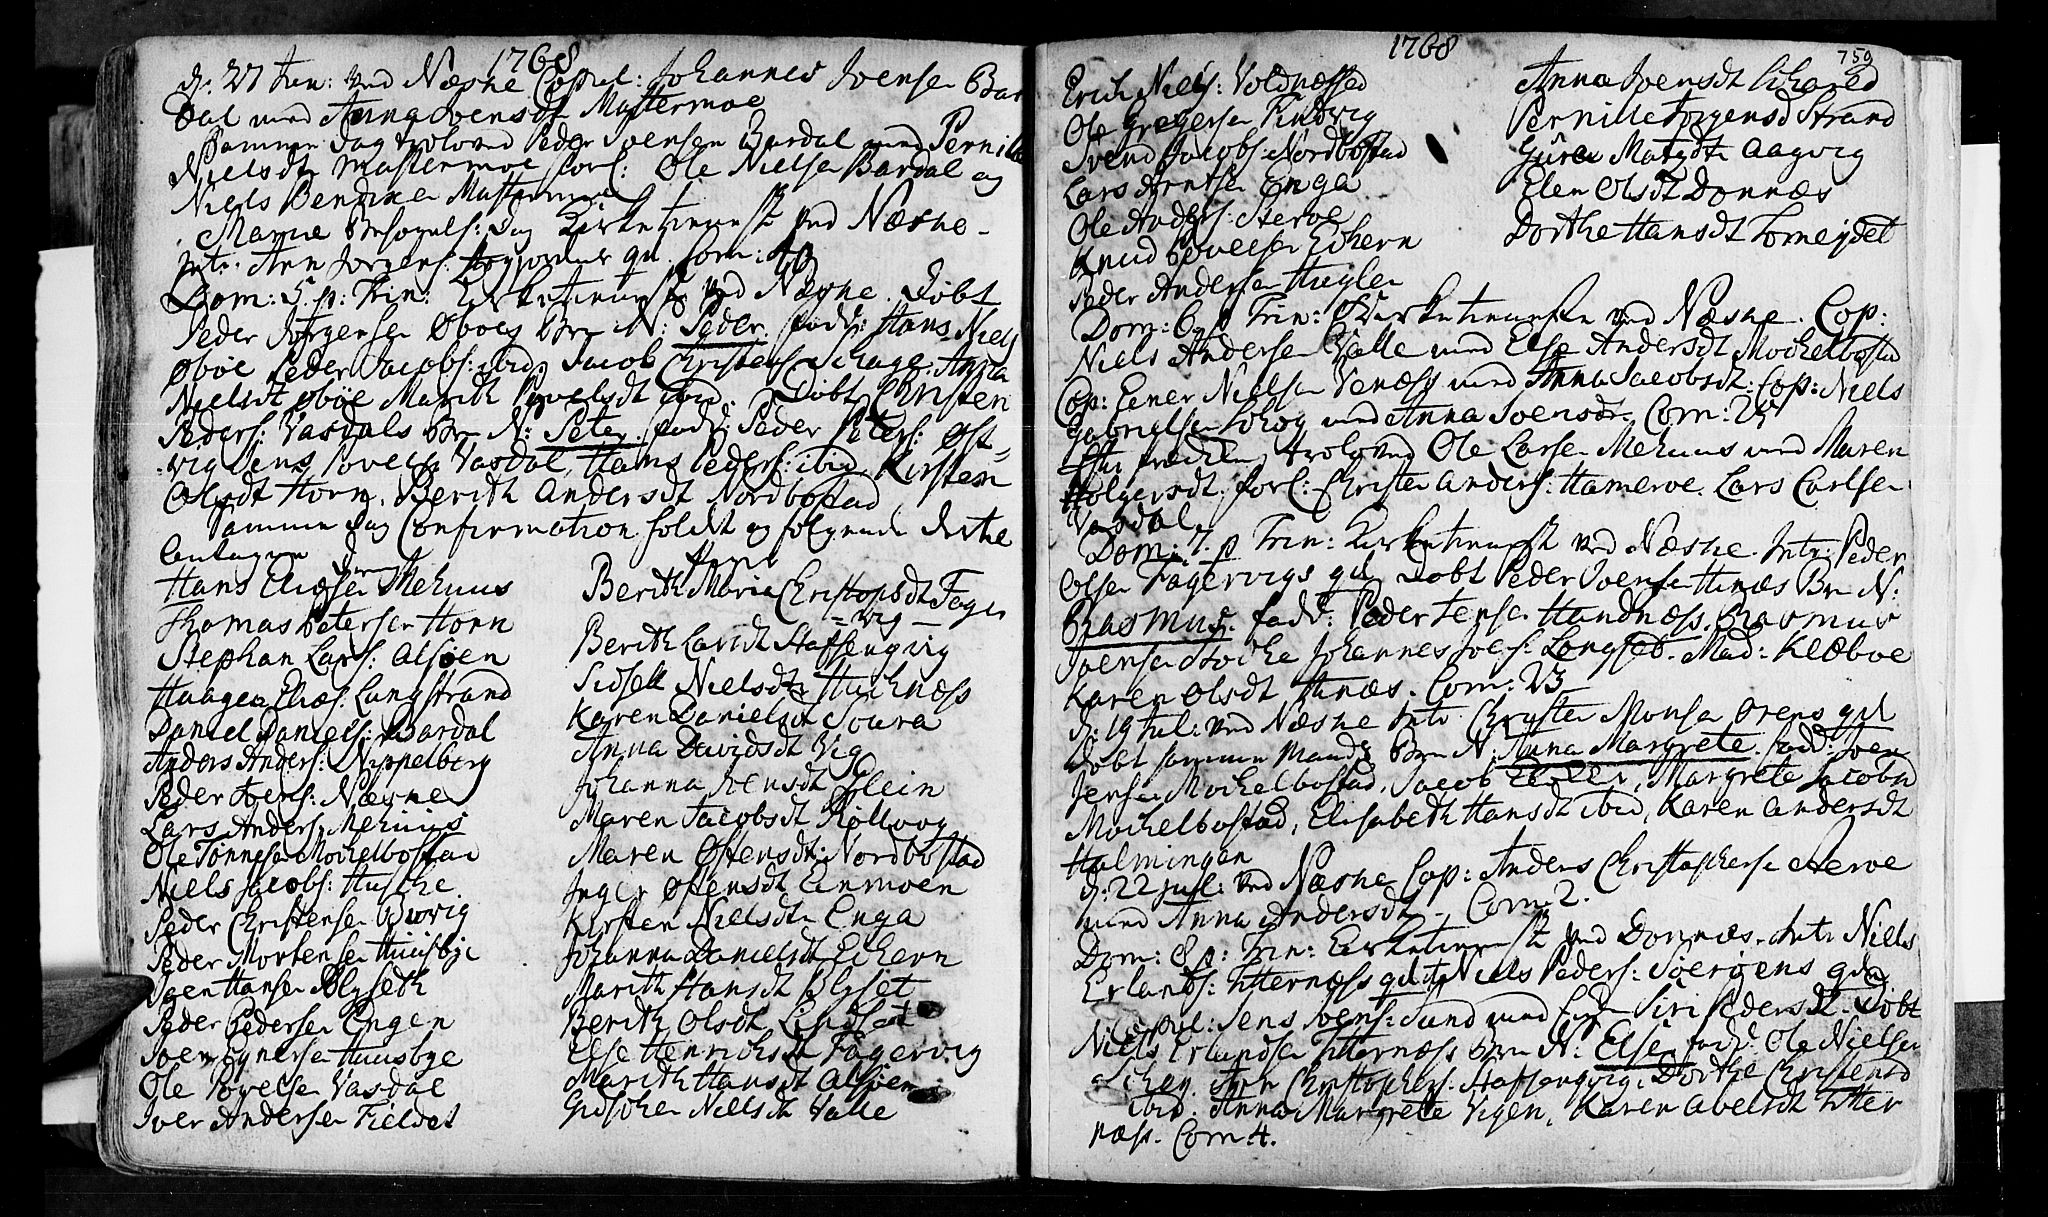 1768
d. 27 Jun: ved Næsne Copul: Johannes Joensen Bar
dal med Anna Joensdt Mastermoe
Samme Dag troloved Peder Joensen Bardal med Pernille
Nielsdt Mastermoe forl: Ole Nielsen Bardal og
Niels Bendixen Mastermoe
Mariæ Besøgels: Dag Kirketieneste ved Næsne
Intr. Ann Jørgens: qu. Com: 49
Dom: 5. p: Trin: Kirketieneste ved Næsne. Døbt
Peder Jørgensen Øboes Bn N: Peder. fadd: Hans Niels
Øboe Peder Jacobs: ibid, Jacob Christens Schage, Anna
Nielsdt Øboe Marith Povelsdt ibid. Døbt Christen
Peders: Vasdals Bn N: Peter. fadd: Peder Peters: Øst-
vig Jens Povels Vasdal, Hans Peders: ibid, Kirsten
Olsdt Horn, Berith Andersdt Nordbostad
Samme Dag Confirmation holdt og følgende dertil
antagen
Hans Eliæsen Mehuus
Thomas Petersen Horn
Stephan Lars: Alsøen
Haagen Eliæs: Langstrand
Daniel Daniels: Bardal
Anders Anders: Nippelberg
Peder Ivers: Næsne
Lars Anders: Mehuus
Ole Tønnesen Mochelbostad
Niels Jacobs: Husche
Peder Christensen Buvig
Peder Mortensen Huusbye
Joen Hansen Blyseth
Peder Pedersen Engen
Joen Eynersen Huusbye
Ole Povelsen Vasdal
Iver Andersen Fieldet
Berith Marie Christophsdt Fager
=vig
Berith Larsdt Staffengvig
Sidsell Nielsdt Huchnæss
Karen Danielsdt Soura
Anna Davidsdt Vig
Johanna Jensdt Glein
Maren Jacobsdt Kollvog
Maren Østensdt Nordbostad
Inger Østensdt Einmoen
Kirsten Nielsdt Enga
Johanna Danielsdt Echern
Marith Hansdt Blyset
Berith Olsdt
Else Henrichsdt Fagervig
Marith Hansdt Alsøen
Nielsdt Valle
1768
759
Erich Niels: Voldnæssed
Ole Gregersen Findvig
Svend Jacobs: Nordbostad
Lars Arntsen Enga
Ole Anders: Herøe
Knud Povelsen Echern
Peder Andersen Huglen
Anna Joensdt
Pernille Jørgensd Strand
Guren Matsdt Aagvig
Elen Olsdt Dønnæs
Dorthe Hansdt Forneydet
Dom: 6. p Trin: Kirketieneste ved Næsne. Cop:
Niels Andersen Valle med Else Andersdt Mochelbostad
Cop: Ener Nielsen Venæss med Anna Jacobsdt: Cop: Niels
Gabrielsen Schog med Anna Joensdt. Com: 25
troloved Ole Larsen Mehuus med Maren
Holgersdt. forl: Christen Anders: Hamerøe. Lars Carlsen
Vasdal
Dom: 7. p Trin: Kirketieneste ved Næsne. Intr: Peder
Olsen Fagervigs qu. Døbt Peder Joensen Hinæs Bn N:
Rasmus. fadd: Peder Jensen Handnæss, Rasmus
Joensen Johannes Joes: Longset. Mad: Klæboe
Karen Olsdt Hinæs. Com: 23
d: 19 Jul: ved Næsne Intr Christen Monsen Ørens qu
døbt samme Mands Bn N: Anna Margrete. fadd: Joen
Jensen Mochelbostad, Jacob Margrete Jacobsd
Mochelbostad, Elisabeth Hansdt ibid, Karen Andersdt
Halmingen
d: 22 Jul: ved Næsne Cop: Anders Christophersen Herøe
med Anna Andersdt. Com 2.
Dom: 8 p: Trin: Kirketieneste ved Dønnæs. Intr Niels
Erlands: Titternæss qu Niels Peders: Søerøens qu
pul: Jens Joens: Sund med Siri Pedersdt. Døbt
Niels Erlandsen Titternæss Bn N: Else fadd: Ole Nielsen
Christophers: Staffengvig, Dorthe Christensd
ibid. Anna Margrete Vigen, Karen Abelsdt Titter
næss. Com 4.